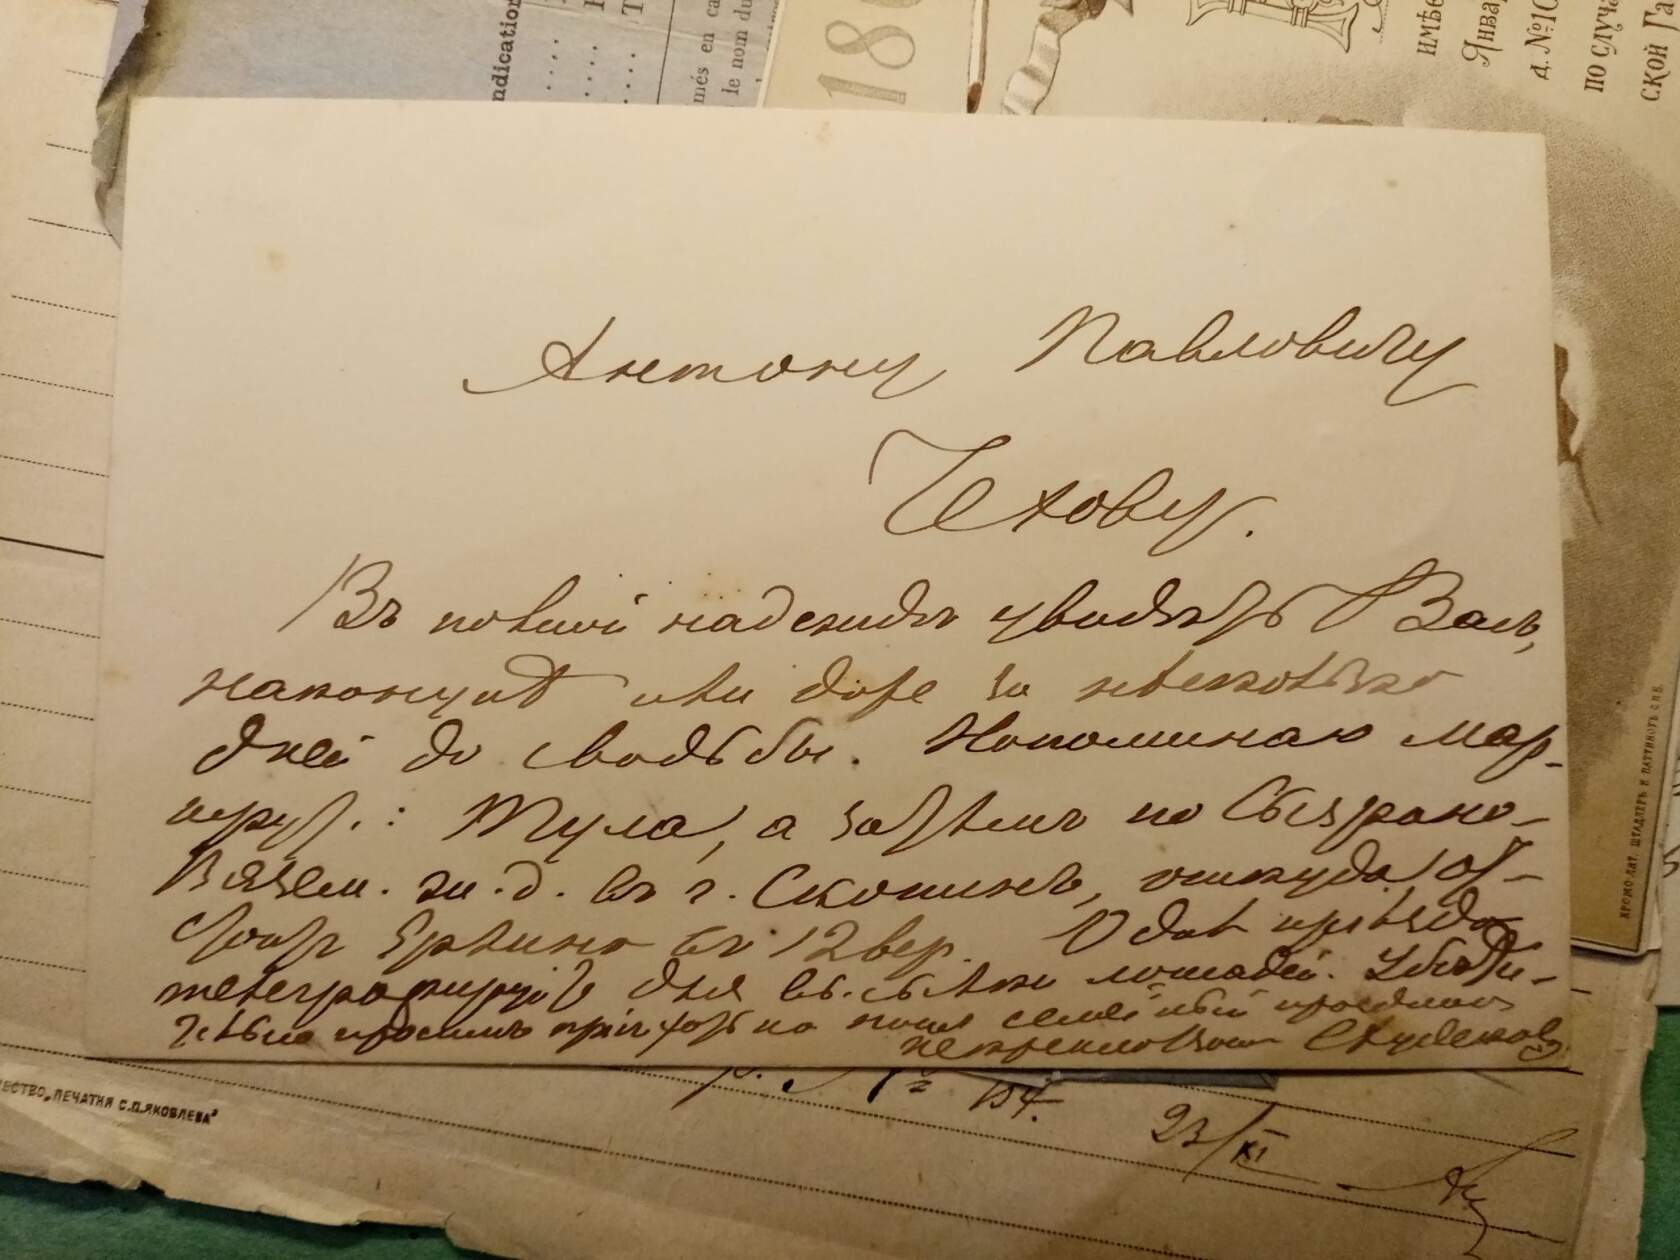 ndication
més en ca
le nom du
18
имѣе
Январ
д. №10
по случа
ской Га
Антону Павловичу
Чехову.
Въ полной надеждѣ увидѣть Васъ,
наконецъ за нѣсколько
дней до свадьбы. Напоминаю мар-
шрут.: Тула, а затѣмъ по Сызрано-
Вязем. ж. д. въ г. Скопинъ, откуда от-
стоитъ въ 12 вер. О дне приѣзда
телеграфируйте для высылки лошадей. Убѣди-
тельно просимъ пріѣхать на наш семейный праздникъ
Скуденсков
хромо-лит. Штадлеръ и Паттинотъ С.П.Б.
ество „Печатня С.П.Яковлева"
23/XI